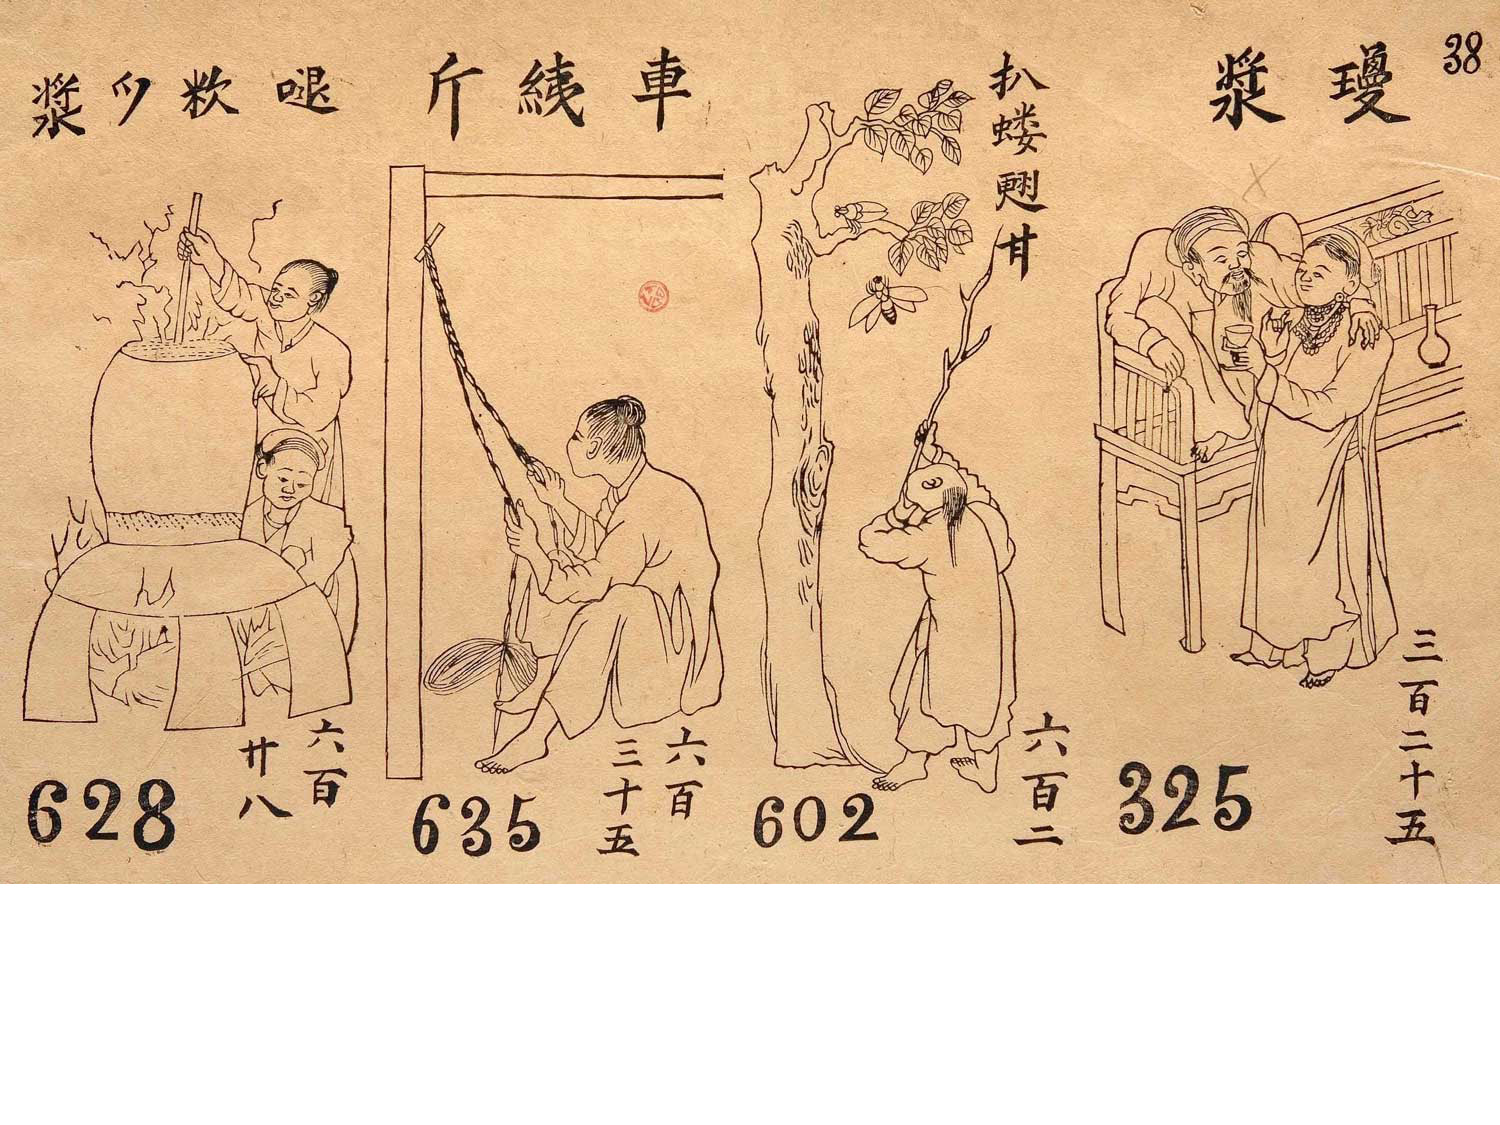 38
瓊漿
三百二十五
325
扒蝼甘
六百二
602
車斤
六百
三十五
635
漿
六百
廿八
628